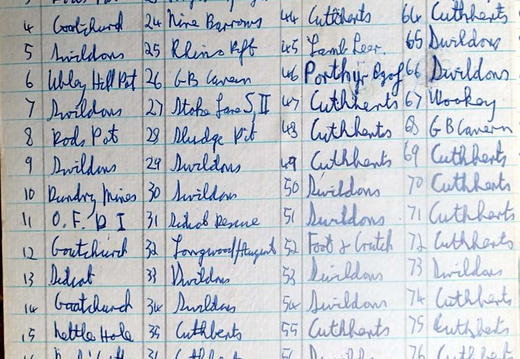 4 Goatchurch 24 Nine Barrows 44 Cuthberts 64 Cuthberts
5 Swildons 25 Rhino Rift 45 Lamb Leer. 65 Swildons
6 Ubley Hill Pot 26 GB Cavern 46 Porthyr Ogof 66 Swildons
7 Swildons 27 Stoke Lane S II 47 Cuthberts 67 Wookey
8 Rods Pot 28 Sludge Pit 48 Cuthberts 68 GB Cavern
9 Swildons 29 Swildons 49 Cuthberts 69 Cuthberts
10 Dundry Mines 30 Swildons 50 Swildons 70 Cuthberts
11 O.F.D I 31 Sidcot Rescue 51 Swildons 71 Cuthberts
12 Goatchurch 32 Longwood/August 52 Foot & Crutch 72 Cuthberts
13 Sidcot 33 Swildons 53 Swildons 73 Swildons
14 Goatchurch 34 Swildons 54 Swildons 74 Cuthberts
15 Nettle Hole 35 Cuthberts 55 Cuthberts 75 Cuthberts
76 Cuthberts